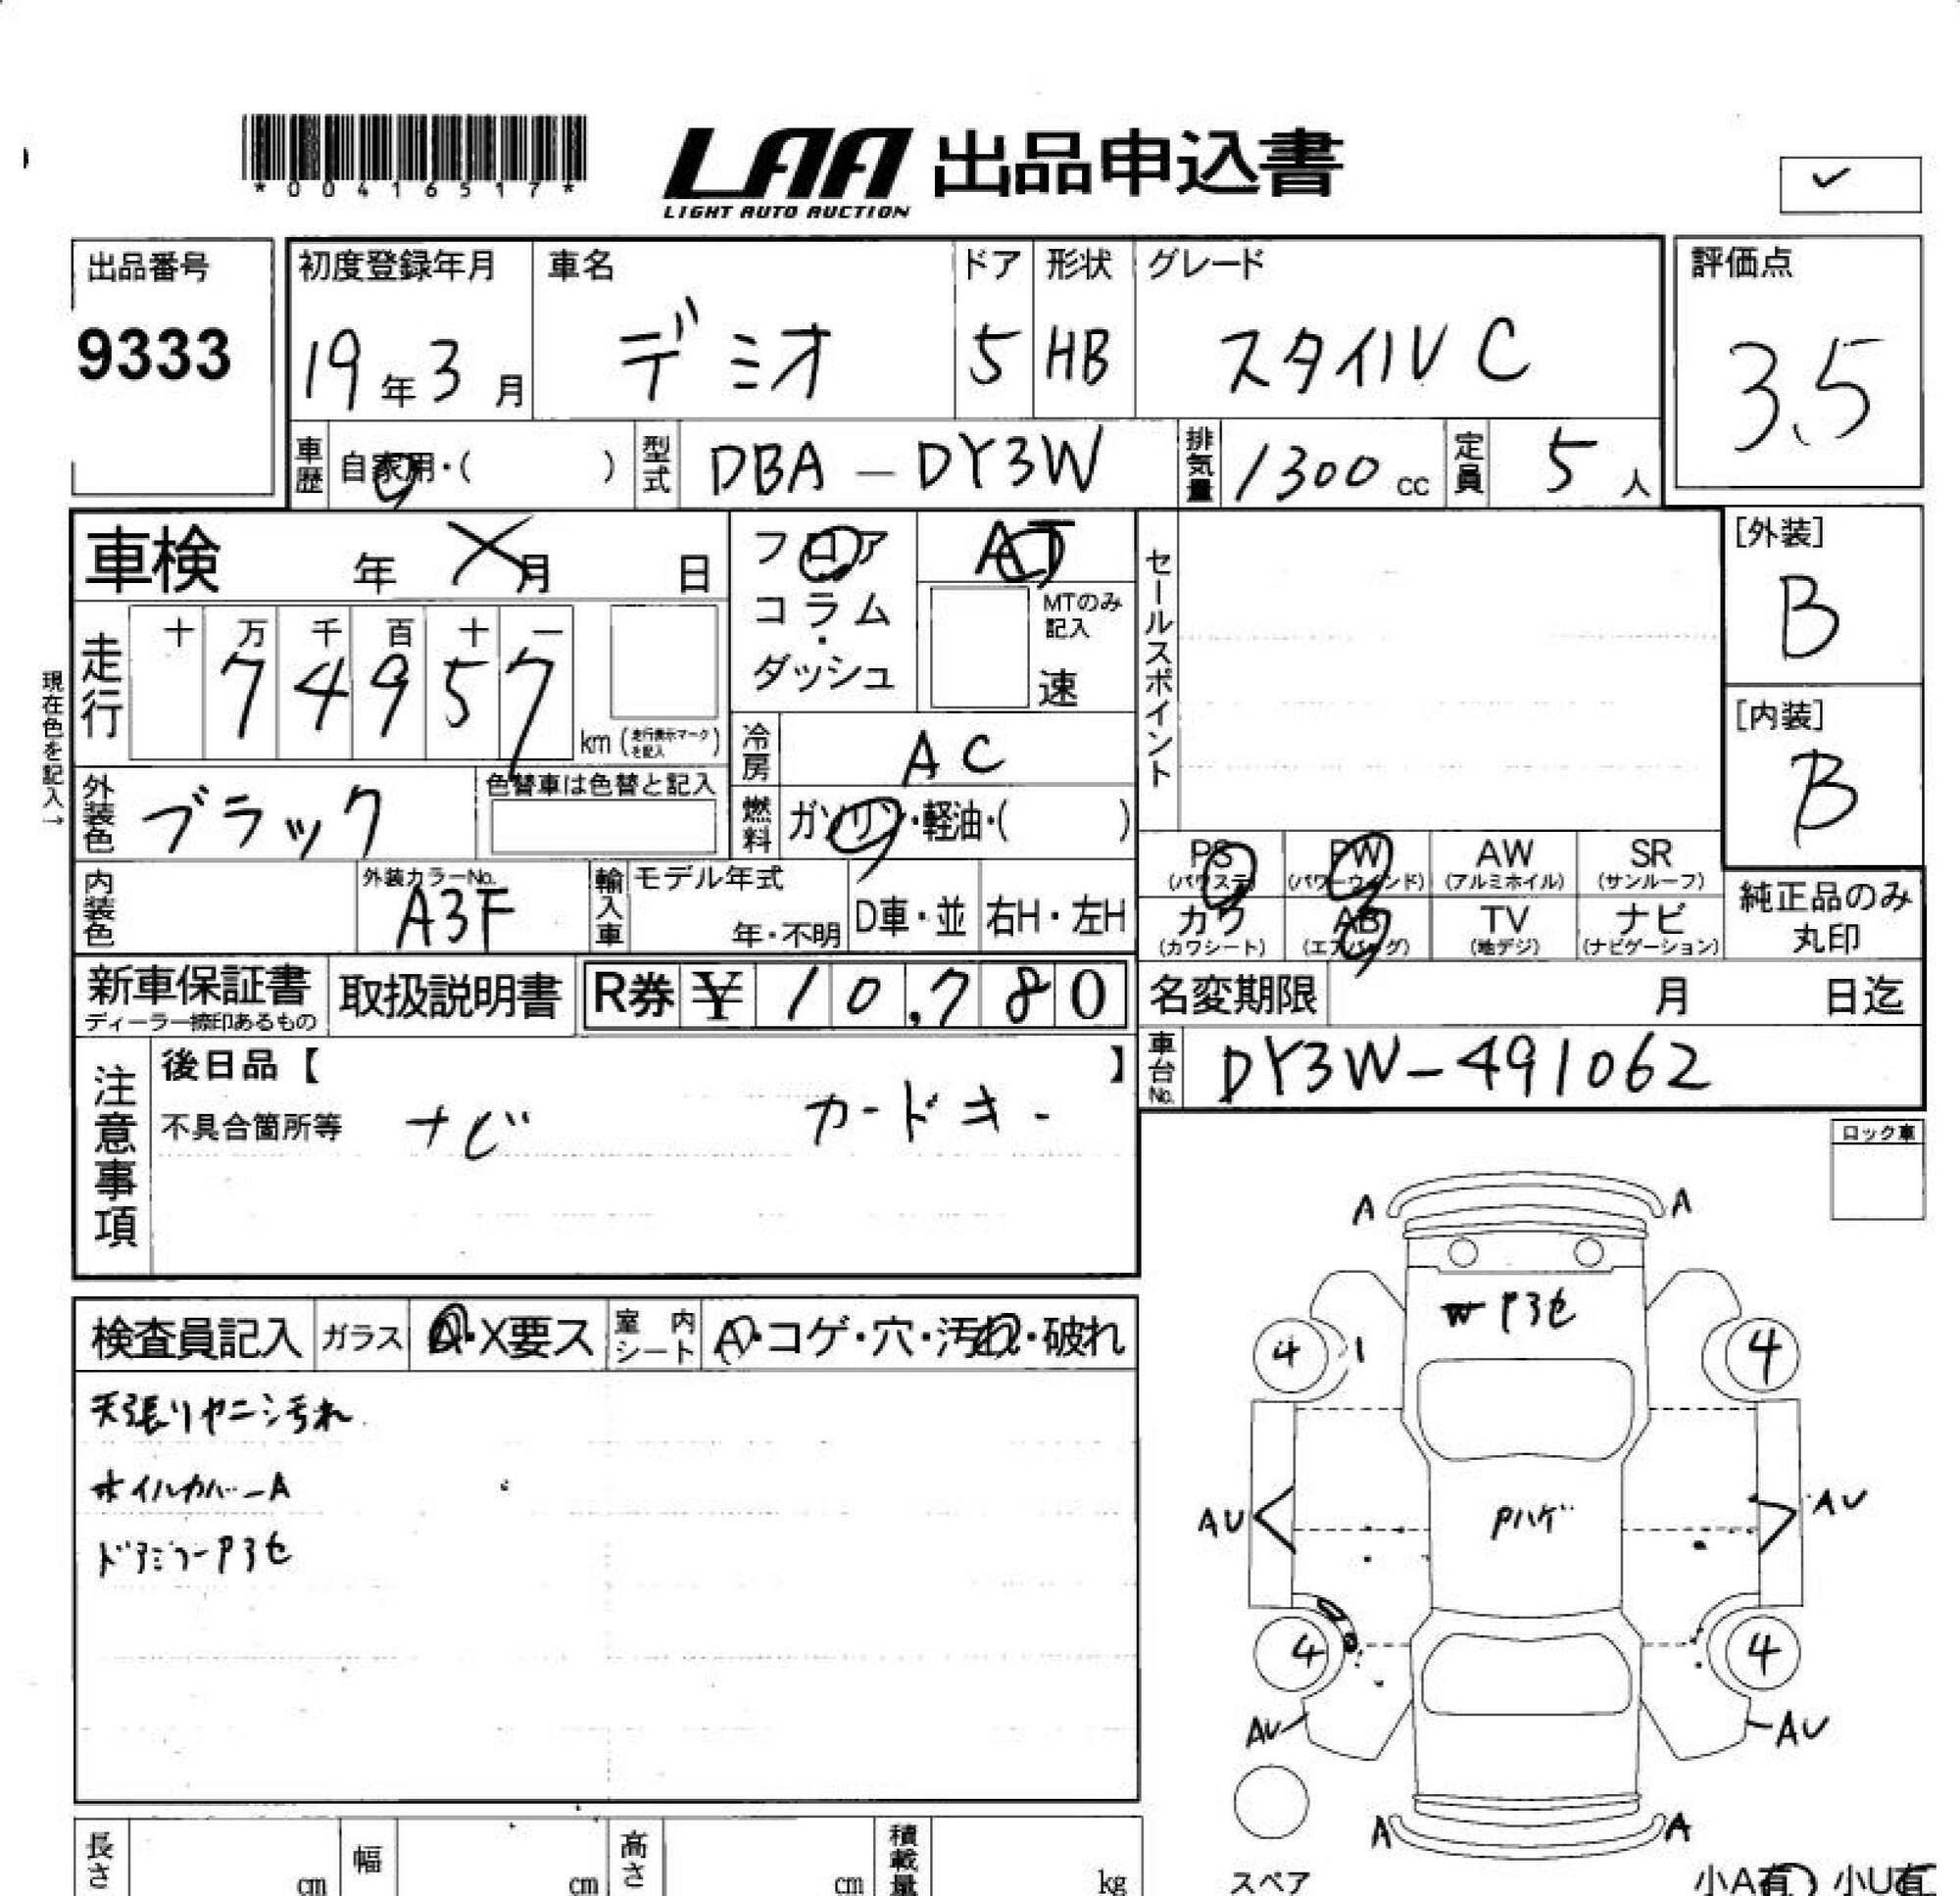 *00416517*
LAA 出品申込書
LIGHT AUTO AUCTION
出品番号
9333
初度登録年月
19年3月
車名
デミオ
ドア
5
形状
HB
グレード
スタイルC
評価点
3.5
車歴
自家用・( )
型式
DBA-DY3W
排気量
1300cc
定員
5人
車検 年 月 日
フロア
コラム
・
ダッシュ
AT
MTのみ
記入
速
セールスポイント
[外装]
B
[内装]
B
現在色を記入→
走行
十 万 千 百 十 一
7 4 9 5 7
km(走行表示マークを記入)
冷房
AC
外装色
ブラック
色替車は色替と記入
燃料
ガソリン・軽油・( )
内装色
外装カラーNo.
A3F
輸入車
モデル年式
年・不明
D車・並
右H・左H
PS
(パワステ)
PW
(パワーウインド)
AW
(アルミホイル)
SR
(サンルーフ)
カワ
(カワシート)
AB
(エアバッグ)
TV
(地デジ)
ナビ
(ナビゲーション)
純正品のみ
丸印
新車保証書
ディーラー捺印あるもの
取扱説明書
R券 ¥ 10,780
名変期限 月 日迄
車台No.
DY3W-491062
注意事項
後日品【 】
不具合箇所等 ナビ カードキー
ロック車
検査員記入
ガラス
A・X要ス
室内シート
A・コゲ・穴・汚れ・破れ
天張りヤニシ汚れ
ホイルカバーA
ドアミラーPヨセ
A A
W Pヨセ
4 1 4
AU AU
Pハゲ
4 4
AU AU
A A
スペア
小A有 小U有
長さ cm
幅 cm
高さ cm
積載量 kg